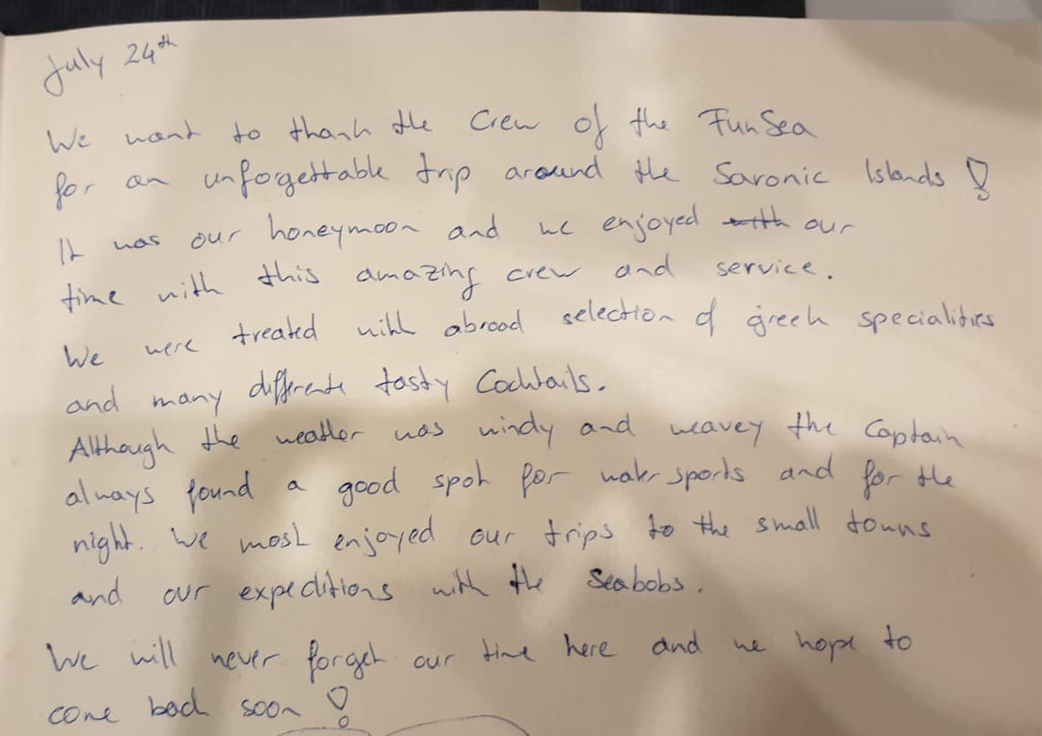 July 24th
We want to thank the Crew of the FunSea
for an unforgettable trip around the Saronic Islands !
It was our honeymoon and we enjoyed with our
time with this amazing crew and service.
We were treated with abroad selection of greek specialities
and many differente tasty Cocktails.
Although the weather was windy and weavey the Captain
always found a good spot for water sports and for the
night. We most enjoyed our trips to the small towns
and our expeditions with the Seabobs.
We will never forget our time here and we hope to
come back soon !